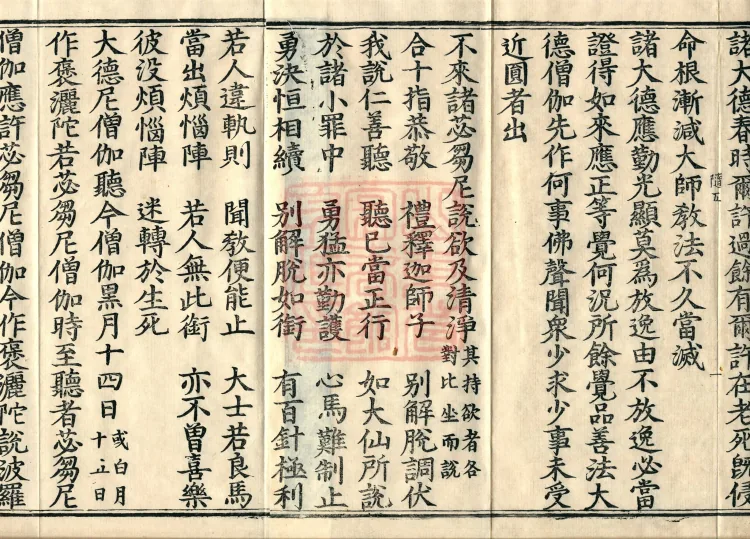 諸大德春時爾許過餘有爾許在老死既侵
隨五
命根漸減大師教法不久當滅
諸大德應勤光顯莫爲放逸由不放逸必當
證得如來應正等覺何況所餘覺品善法大
德僧伽先作何事佛聲聞衆少求少事未受
近圓者出
不來諸苾芻尼說欲及清淨其持欲者各對比坐而說
合十指恭敬 禮釋迦師子 別解脫調伏
我說仁善聽 聽已當正行 如大仙所說
於諸小罪中 勇猛亦勤護 心馬難制止
勇決恒相續 別解脫如銜 有百針極利
若人違軌則 聞教便能止 大士若良馬
當出煩惱陣 若人無此銜 亦不曾喜樂
彼没煩惱陣 迷轉於生死
大德尼僧伽聽今僧伽黑月十四日或白月十五日
作褒灑陀若苾芻尼僧伽時至聽者苾芻尼
僧伽應許苾芻尼僧伽今作褒灑陀說波羅